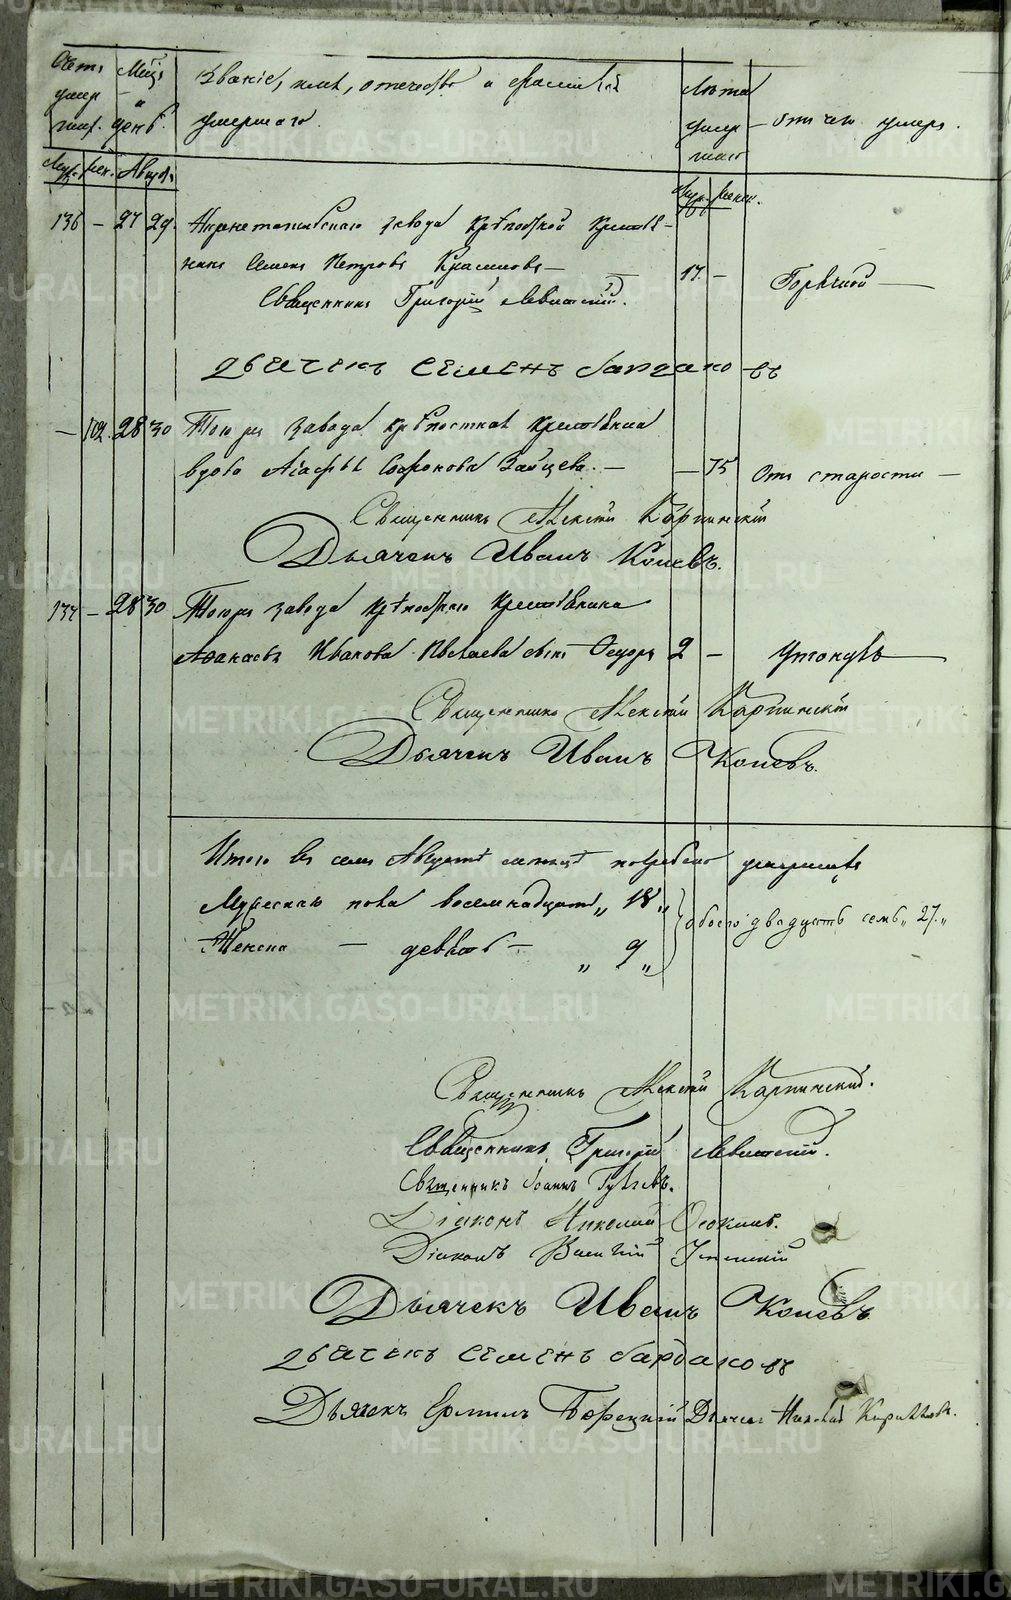 Счетъ умер шихъ.
Мѣсяцъ и день.
Званіе, имя, отечество и фамилія
умершаго.
Лѣта умер шаго
отъ чего умеръ.
Муж. жен. Августъ.
Муж. женск.
136 — 27 29. Нижнетагильскаго завода Крѣпостной Крестья-
нинъ Семенъ Петровъ Красиловъ — 17. — Горячкой —
Священникъ Григорій Левитскій.
Дьячекъ Семенъ Бардаковъ
— 102. 28 30 Того же завода крѣпостная крестьянка
вдова Агафья Софронова Зайцева. — — 75 Отъ старости —
Священникъ Алексій Карпинскій
Дьячекъ Иванъ Копевъ.
137 — 28 30 Того же завода крѣпостнаго крестьянина
Аѳанасья Иванова сынъ Ѳедоръ 2 — Утонулъ —
Священникъ Алексій Карпинскій
Дьячекъ Иванъ Копевъ.
Итого въ семъ Августѣ мѣсяцѣ погребено умершихъ
Мужеска пола восемнадцать „ 18 „
обоего двадцать семь „ 27. „
Женска — девять — „ 9 „
Священникъ Алексій Карпинскій.
Священникъ Григорій Левитскій.
Священникъ Іоаннъ
Діаконъ Николай Осокинъ.
Діаконъ Василій
Дьячекъ Иванъ Копевъ
Дьячекъ Семенъ Бардаковъ
Дьячекъ Ермилъ Борецкій Дьячекъ Николай
METRIKI.GASO-URAL.RU